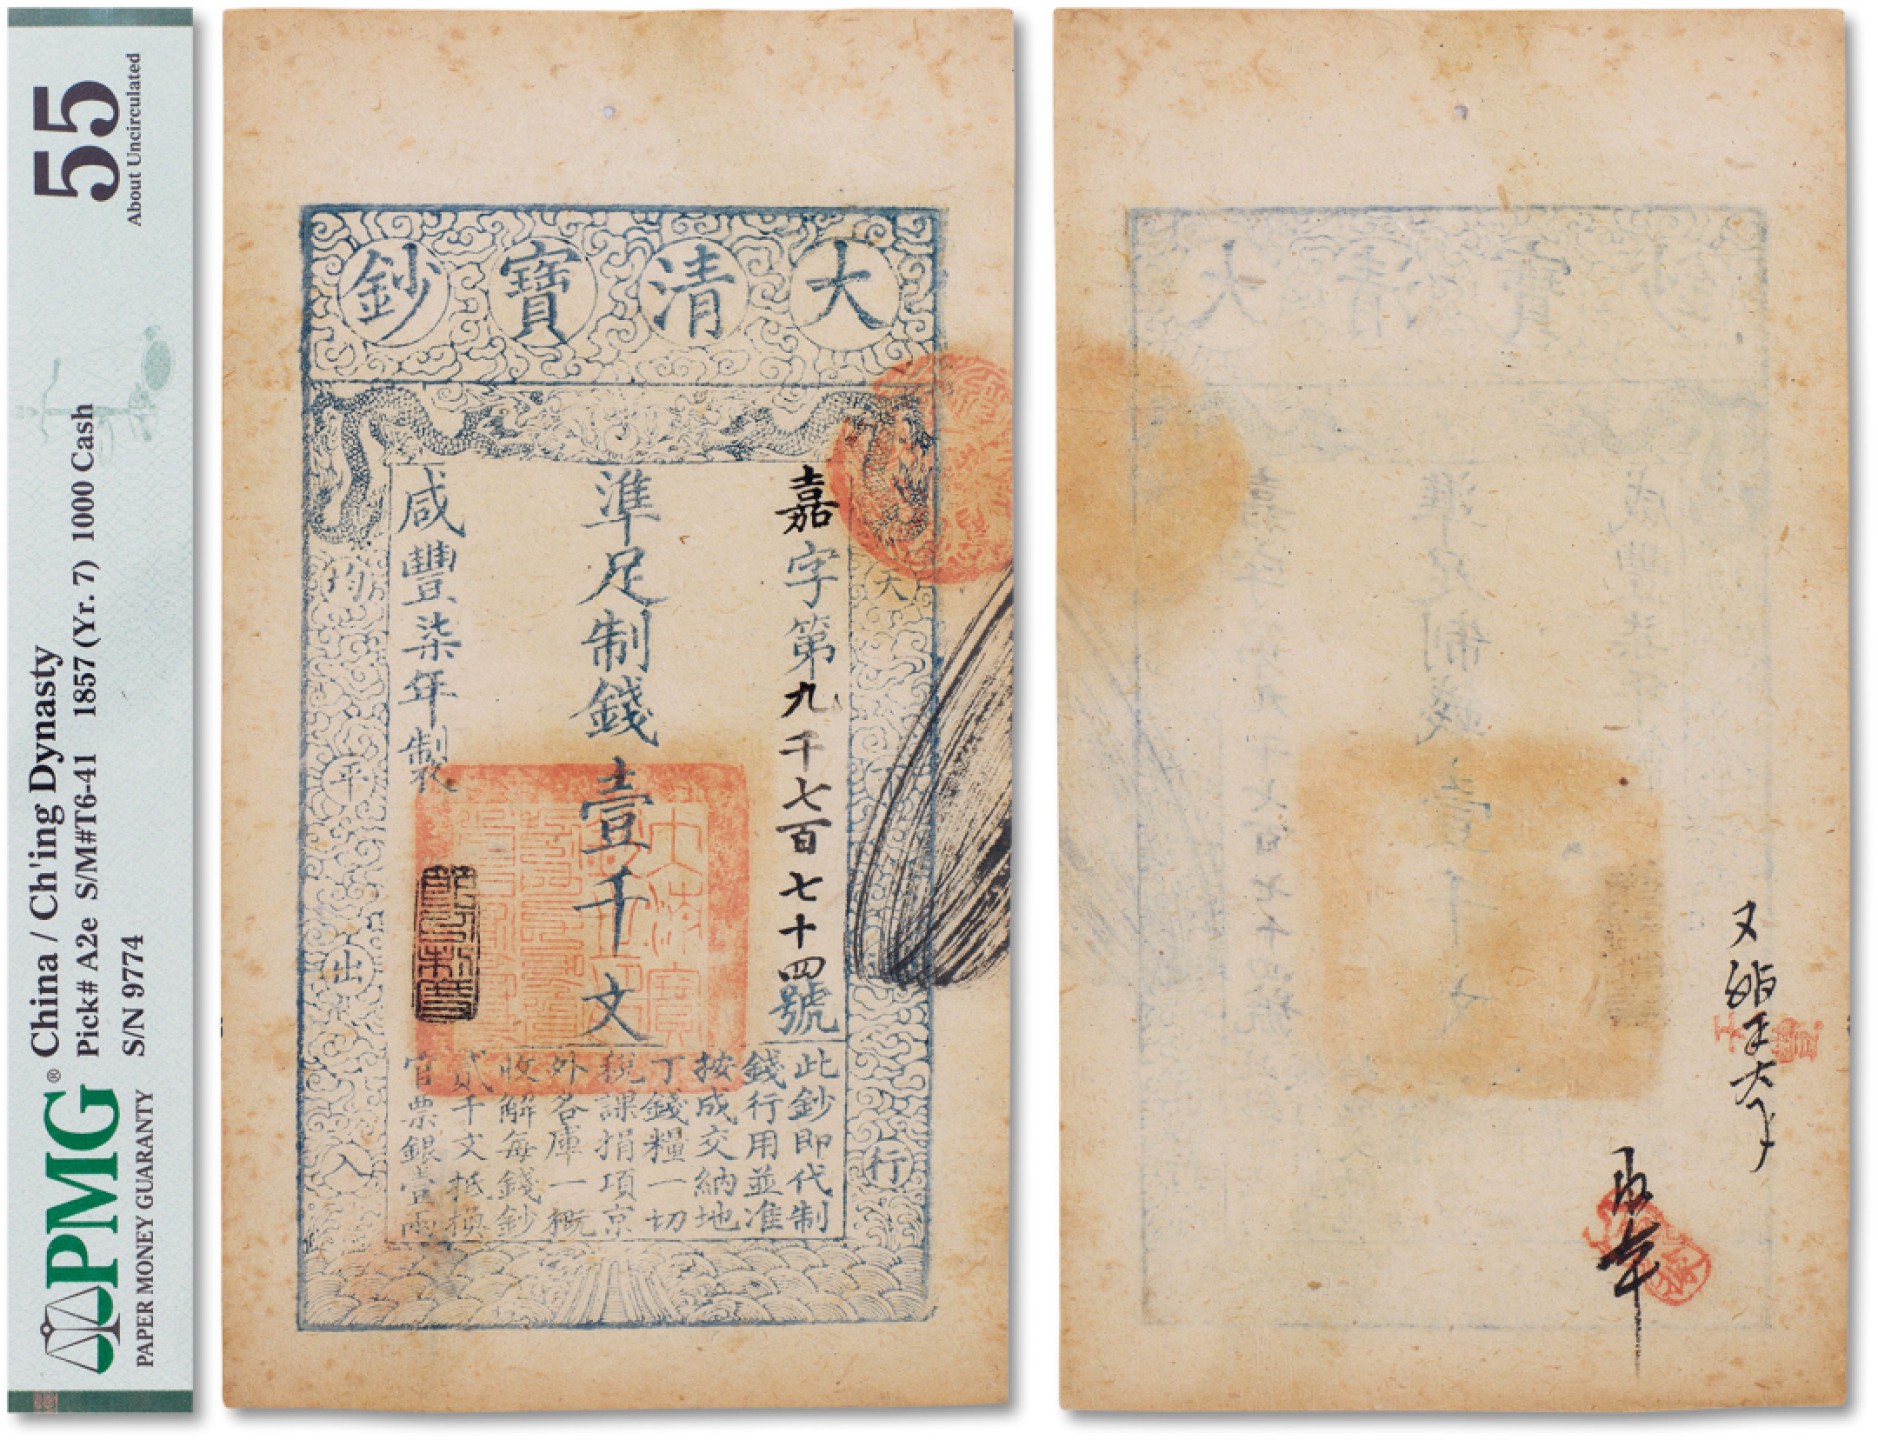 55
About Uncirculated
China / Ch'ing Dynasty
Pick# A2e S/M#T6-41 1857 (Yr. 7) 1000 Cash
S/N 9774
PMG®
PAPER MONEY GUARANTY
大清寶鈔
嘉字第九千七百七十四號
準足制錢壹千文
咸豐柒年製
天
行
均
平
出
入
此鈔即代制
錢行用並准
按成交納地
丁錢糧一切
稅課捐項京
外各庫一概
收解每錢鈔
貳千文抵換
官票銀壹兩
大清寶